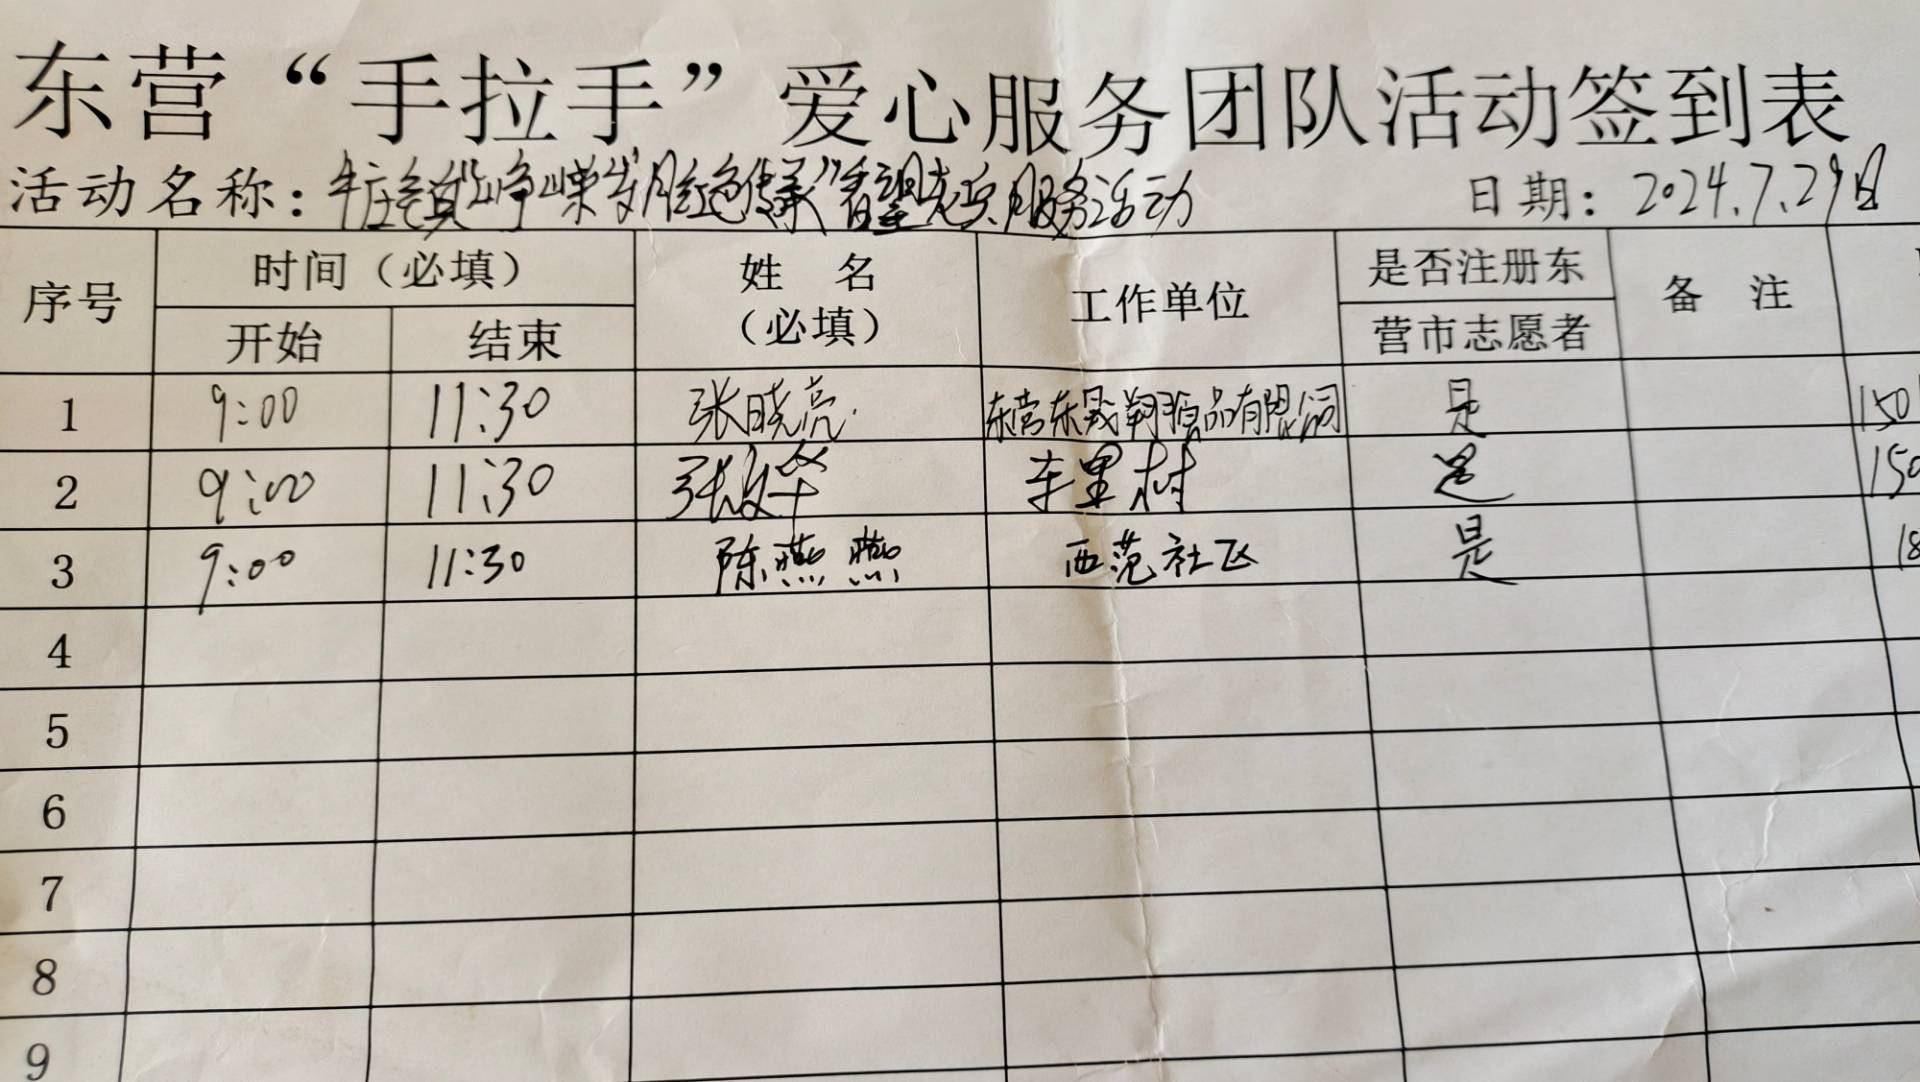 东营“手拉手”爱心服务团队活动签到表
活动名称：牛庄镇“峥嵘岁月红色传承”看望老兵服务活动 日期：2024.7.29日
序号 时间（必填） 姓 名（必填） 工作单位 是否注册东营市志愿者 备 注
开始 结束
1 9:00 11:30 张晓亮 东营东晟翔食品有限公司 是 150
2 9:00 11:30 张 华 车里村 是 150
3 9:00 11:30 陈燕燕 西范社区 是 18
4
5
6
7
8
9